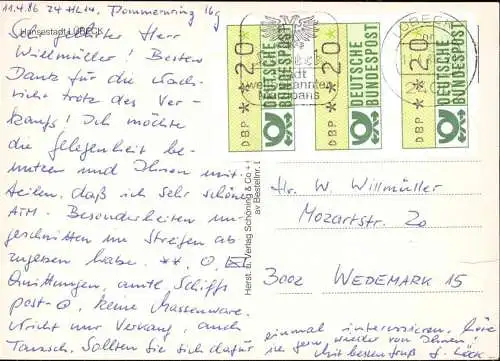 11.4.86 24 HL14, Pommernring 16g
Hansestadt LÜBECK
Sehr geehrter Herr
Willmüller! Besten
Dank für die Nach-
richt trotz des Ver-
kaufs! Ich möchte
die Gelegenheit be-
nutzen und Ihnen mit-
teilen, daß ich sehr schöne
ATM-Besonderheiten un-
geschnitten im Streifen ab-
zugeben habe. **, O, ✉
Quittungen, amtl. Schiffs
post-O, keine Massenware.
Nicht nur Verkauf, auch
Tausch. Sollten Sie sich dafür
einmal interessieren, höre
ich gern wieder von Ihnen
Mit besten Gruß
Herst. u. Verlag Schöning & Co +
av Bestellnr.
DBP ** 20 DEUTSCHE BUNDESPOST
DBP ** 20 DEUTSCHE BUNDESPOST
DBP ** 20 DEUTSCHE BUNDESPOST
LÜBECK
Hr. W. Willmüller
Mozartstr. 20
3002 WEDEMARK 15